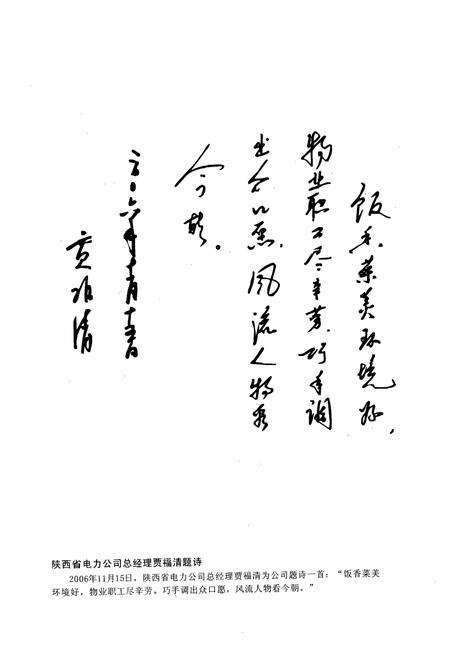 饭香菜美环境好，
物业职工尽辛劳，巧手调
出众口愿，风流人物看
今朝。
二〇〇六年十一月十五日
贾福清
陕西省电力公司总经理贾福清题诗
2006年11月15日，陕西省电力公司总经理贾福清为公司题诗一首：“饭香菜美
环境好，物业职工尽辛劳。巧手调出众口愿，风流人物看今朝。”